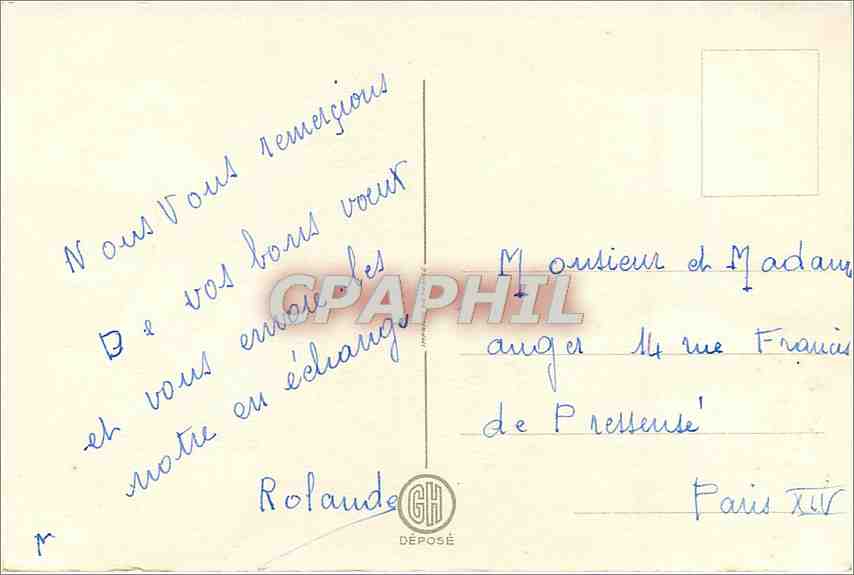 Nous Vous remerçions
De vos bons vœux
et vous envoie les
notre en échange
Rolande
Monsieur et Madame
anger 14 rue Francis
de Pressensé
Paris XIV
GH
DÉPOSÉ
CPAPHIL